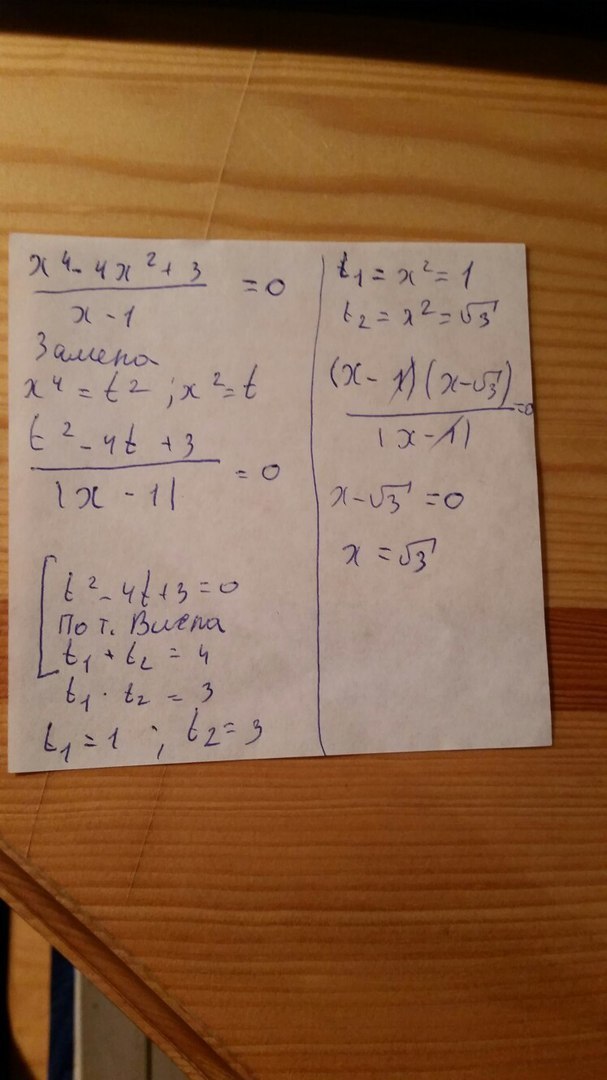 x⁴ - 4x² + 3
x - 1
= 0
Замена
x⁴ = t² ; x² = t
t² - 4t + 3
|x - 1|
= 0
t² - 4t + 3 = 0
По т. Виета
t₁ + t₂ = 4
t₁ · t₂ = 3
t₁ = 1 ; t₂ = 3
t₁ = x² = 1
t₂ = x² = √3
(x - 1)(x - √3)
|x - 1|
= 0
x - √3 = 0
x = √3